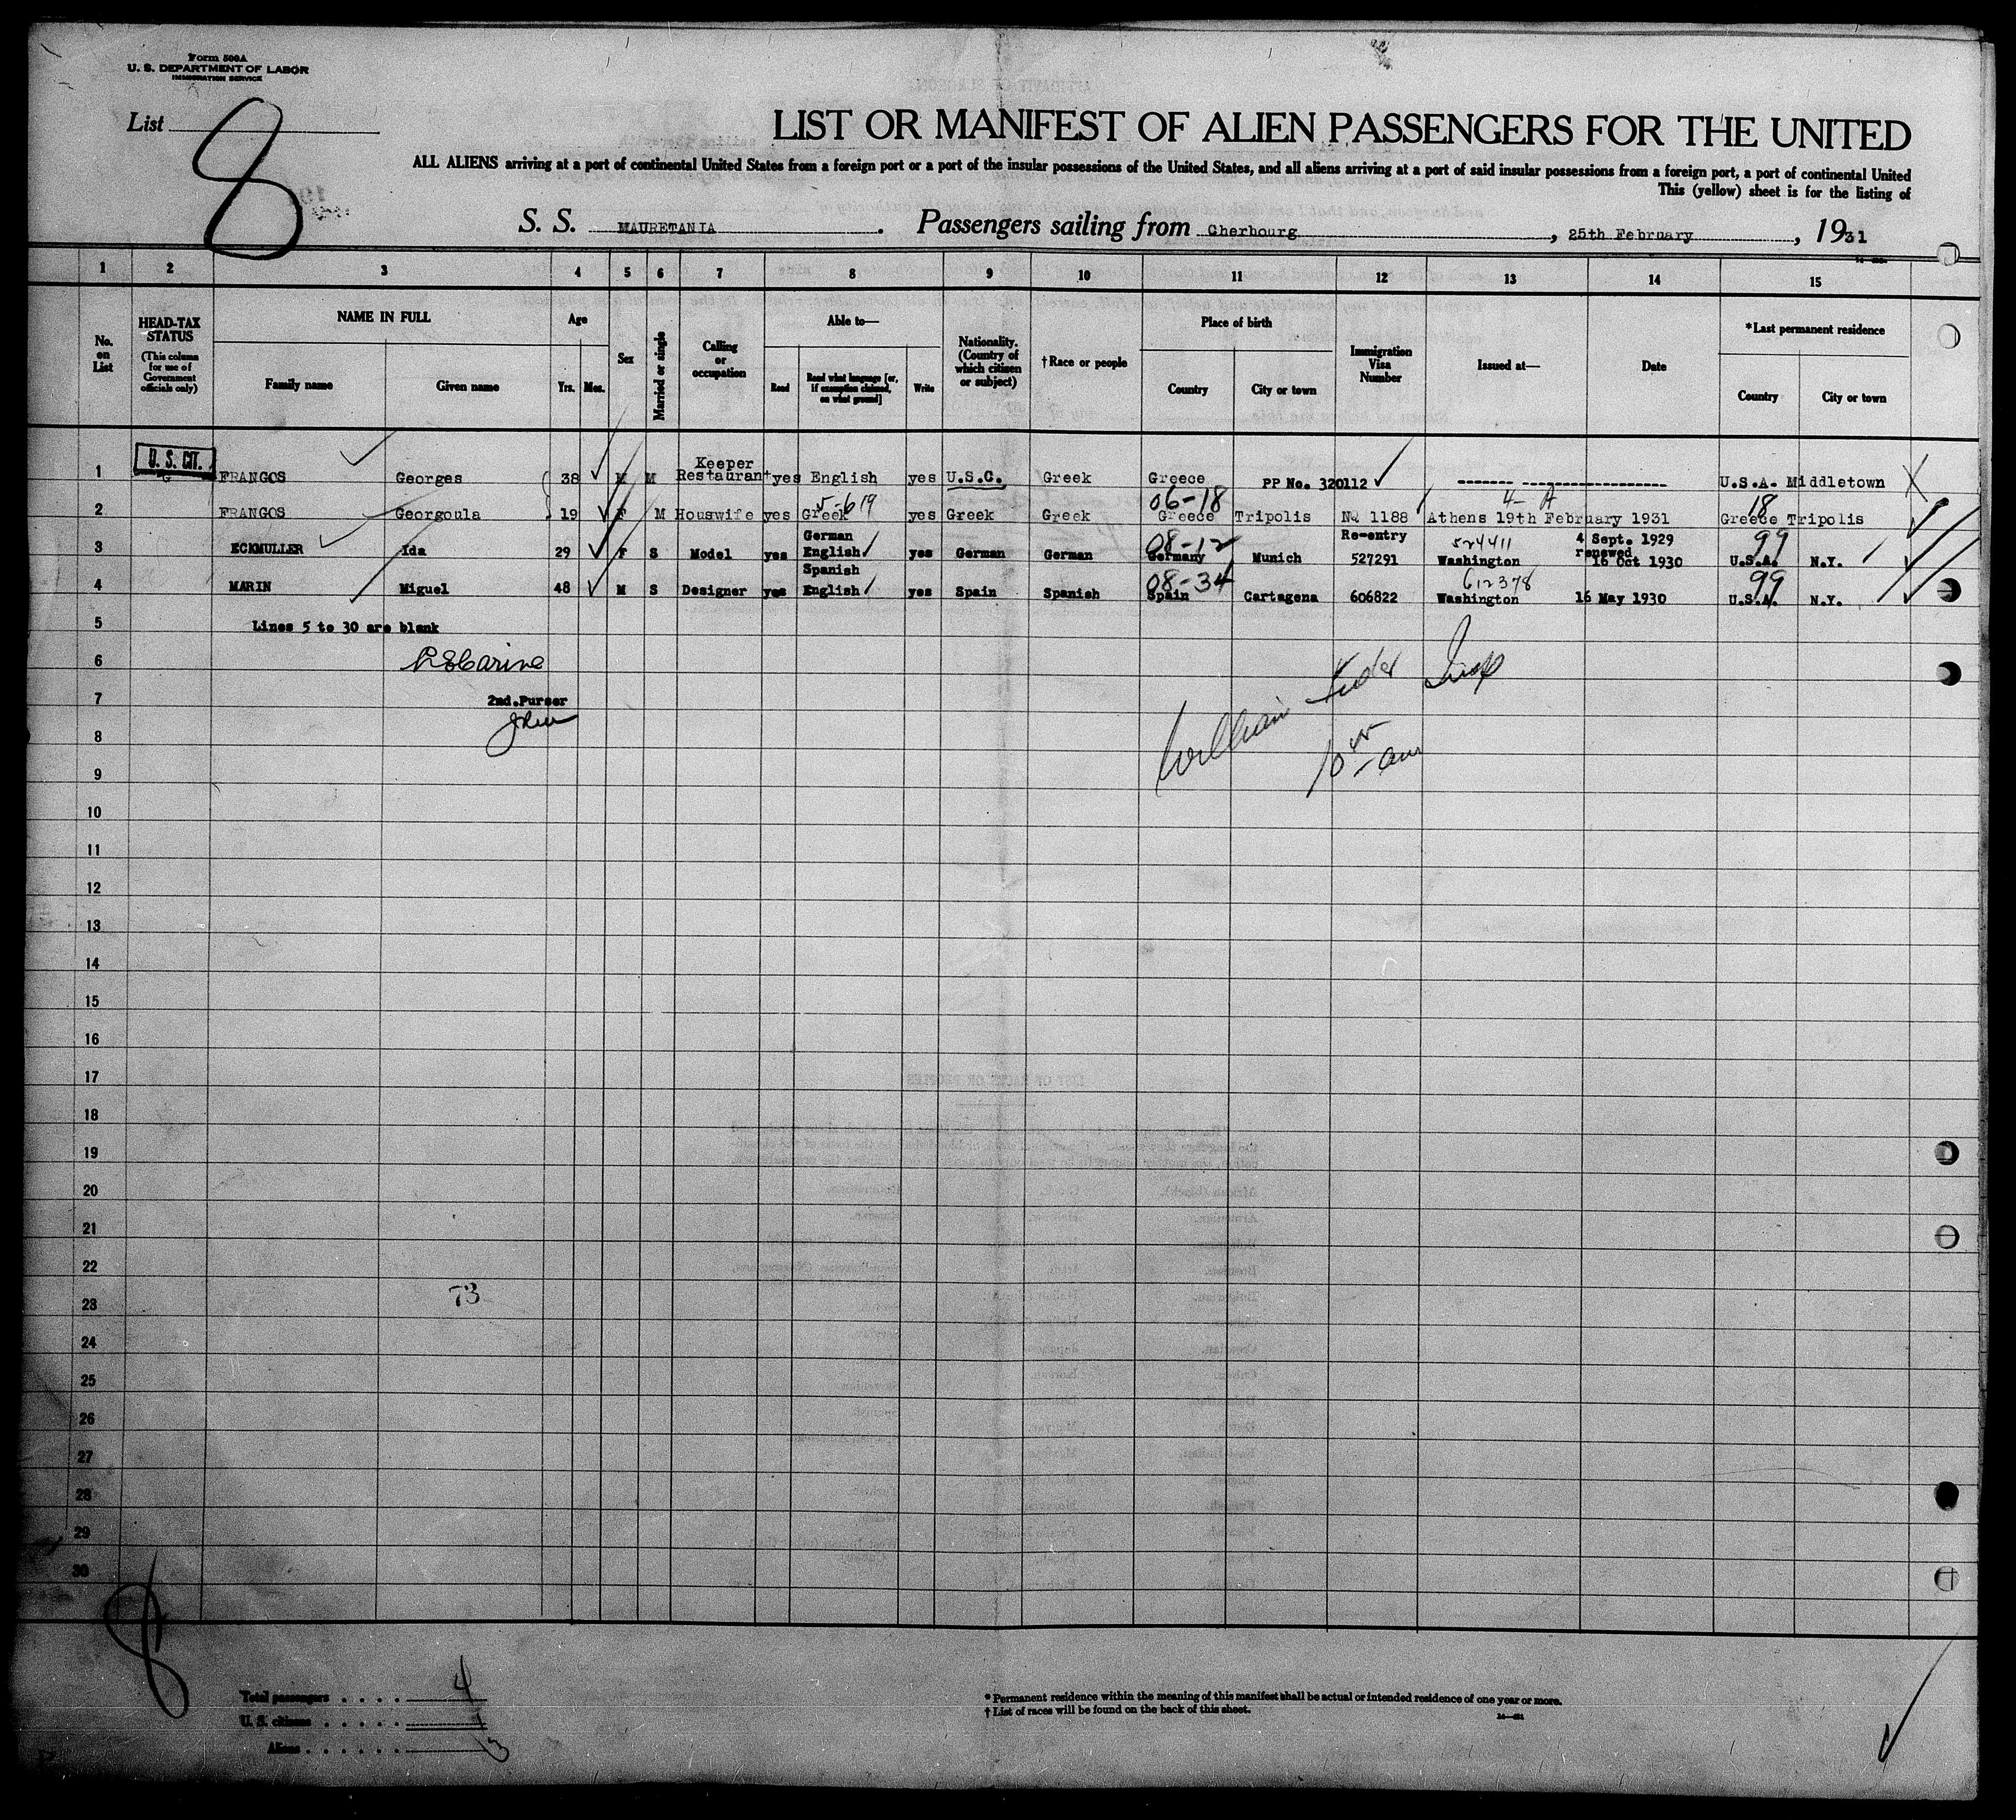 Form 500A
U. S. DEPARTMENT OF LABOR
IMMIGRATION SERVICE
List 8
LIST OR MANIFEST OF ALIEN PASSENGERS FOR THE UNITED
ALL ALIENS arriving at a port of continental United States from a foreign port or a port of the insular possessions of the United States, and all aliens arriving at a port of said insular possessions from a foreign port, a port of continental United
This (yellow) sheet is for the listing of
S. S. MAURETANIA. Passengers sailing from Cherbourg, 25th February, 1931
1 2 3 4 5 6 7 8 9 10 11 12 13 14 15
No. on List
HEAD-TAX STATUS (This column for use of Government officials only)
NAME IN FULL
Family name
Given name
Age
Yrs. Mos.
Sex
Married or single
Calling or occupation
Able to—
Read
Read what language [or, if exemption claimed, on what ground]
Write
Nationality. (Country of which citizen or subject)
† Race or people
Place of birth
Country
City or town
Immigration Visa Number
Issued at—
Date
*Last permanent residence
Country
City or town
1 U. S. CIT. FRANGOS Georges 38 M M Keeper Restaurant yes English yes U.S.C. Greek Greece PP No. 320112 U.S.A. Middletown X
5-619 06-18 4-A 18
2 FRANGOS Georgoula 19 F M Houswife yes Greek yes Greek Greek Greece Tripolis NQ 1188 Athens 19th February 1931 Greece Tripolis
German 08-12 Re-entry 524411 4 Sept. 1929 renewed 99
3 ECKMULLER Ida 29 F S Model yes English yes German German Germany Munich 527291 Washington 16 Oct 1930 U.S.A. N.Y.
Spanish 08-34 612378 99
4 MARIN Miguel 48 M S Designer yes English yes Spain Spanish Spain Cartagena 606822 Washington 16 May 1930 U.S.A. N.Y.
5 Lines 5 to 30 are blank
6
7 2nd.Purser
8
William Insp
10 am
9
10
11
12
13
14
15
16
17
18
19
20
21
22
23 73
24
25
26
27
28
29
30
8
Total passengers . . . . 4
U. S. citizens . . . . . 1
Aliens . . . . . . 3
* Permanent residence within the meaning of this manifest shall be actual or intended residence of one year or more.
† List of races will be found on the back of this sheet.